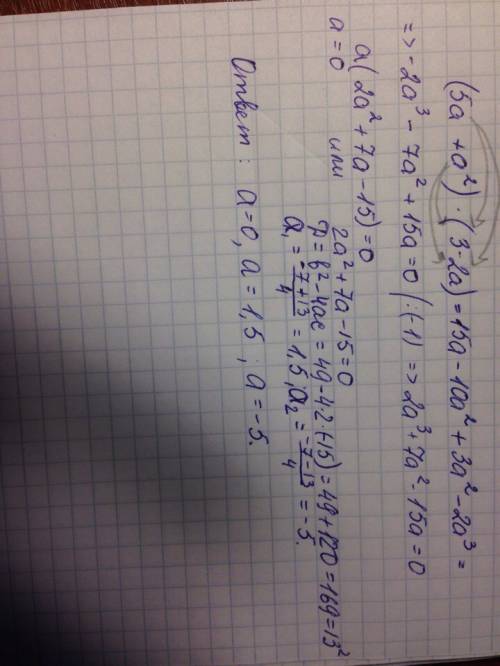 (5a + a²) · (3 - 2a) = 15a - 10a² + 3a² - 2a³ =
=> -2a³ - 7a² + 15a = 0 | : (-1) => 2a³ + 7a² - 15a = 0
a(2a² + 7a - 15) = 0
a = 0 или 2a² + 7a - 15 = 0
D = b² - 4ac = 49 - 4·2·(-15) = 49 + 120 = 169 = 13²
a₁ = (-7 + 13)/4 = 1,5; a₂ = (-7 - 13)/4 = -5.
Ответ: a = 0, a = 1,5; a = -5.